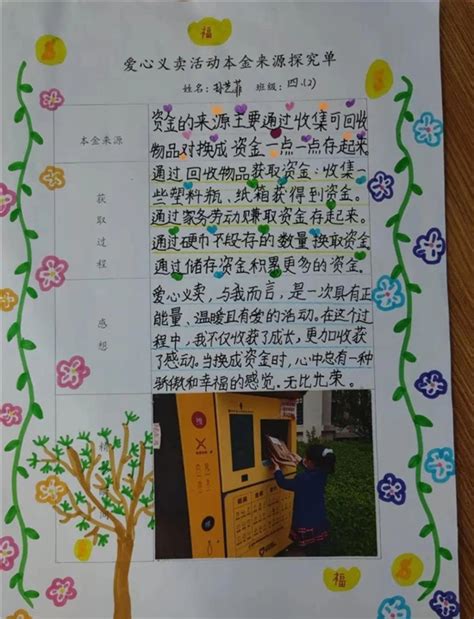 福
爱心义卖活动本金来源探究单
姓名: 班级: 四.(2)
本金来源
资金的来源主要通过收集可回收
物品对换成资金一点一点存起来
获取过程
通过回收物品获取资金:收集一
些塑料瓶、纸箱获得到资金。
通过家务劳动赚取资金存起来。
通过硬币不段存的数量换取资金
通过储存资金积累更多的资金。
感想
爱心义卖,与我而言,是一次具有正
能量、温暖且有爱的活动。在这个过
程中,我不仅收获了成长,更加收获
了感动。当换成资金时,心中总有一种
骄傲和幸福的感觉.无比光荣。
福